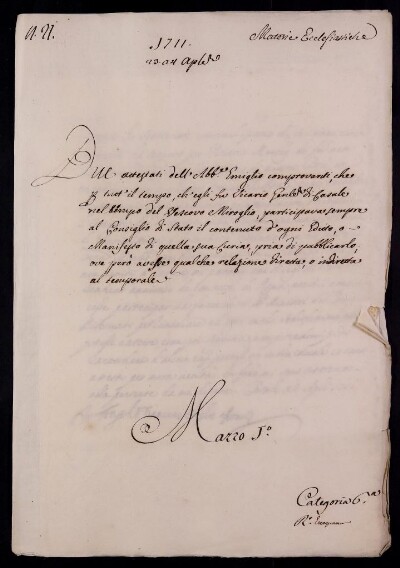 N. 21.
Materie Ecclesiastiche
1711.
23 24 Aple
Due attestati dell'Abbe. Emiglio comprovanti, che
tutt'il tempo, ch'egli fu Vicario Genle. di Casale
nel tempo del Vescovo Miroglio, participava sempre
al Consiglio di Stato il contenuto d'ogni Edito, o
Manifesto di quella sua Curia, pria di pubblicarlo,
ove però avesse qualche relazione diretta, o indiretta
al temporale
Mazzo 1.o
Categoria 6.a